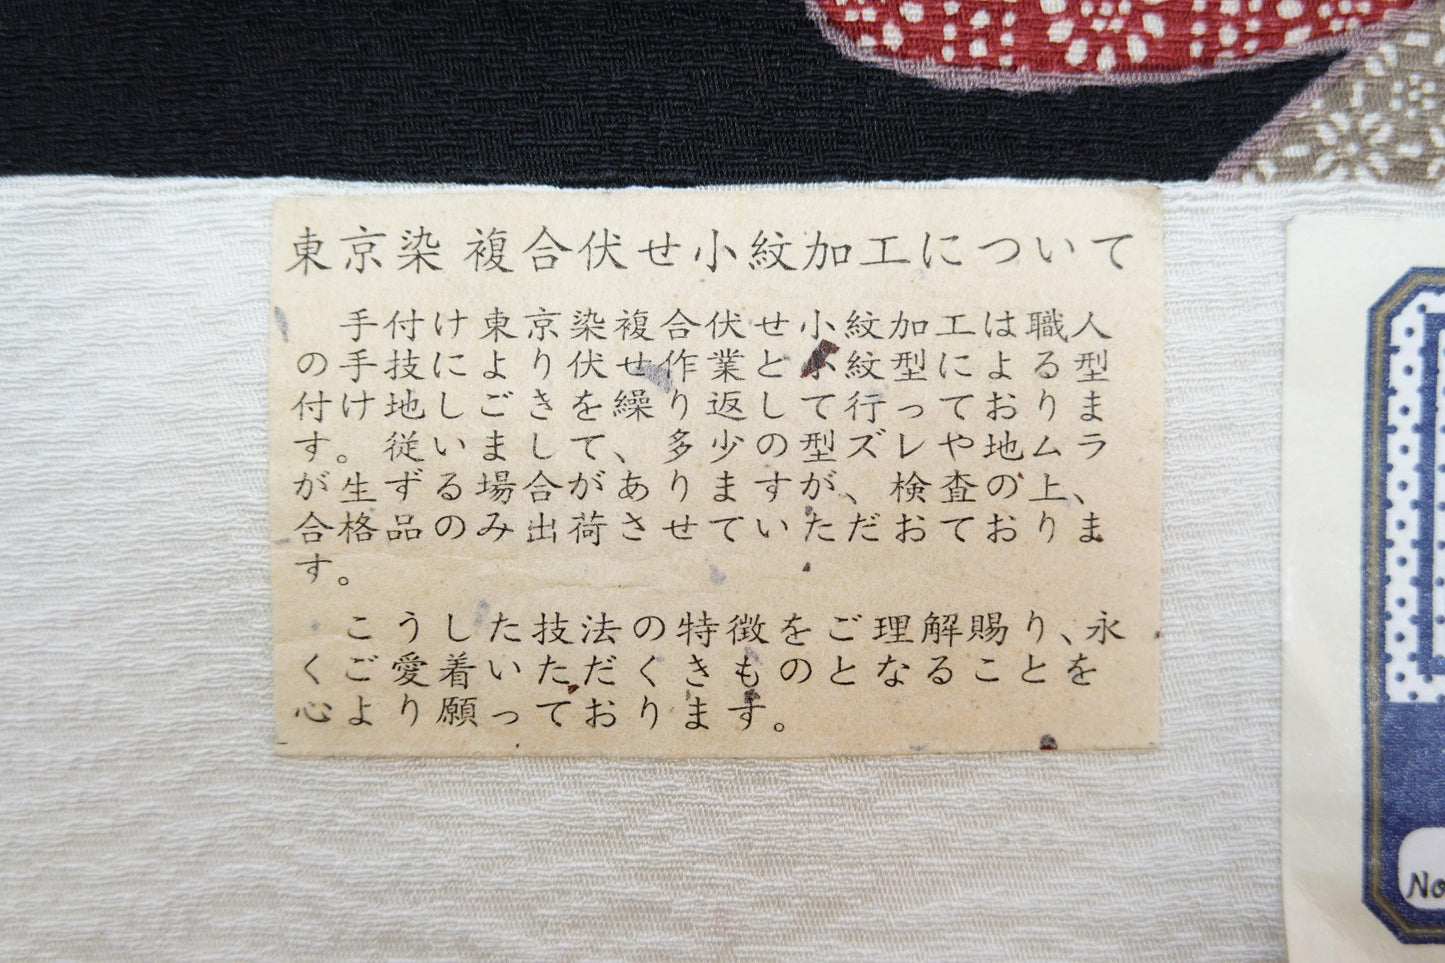 東京染 複合伏せ小紋加工について
手付け東京染複合伏せ小紋加工は職人
の手技により伏せ作業と小紋型による型
付け地しごきを繰り返して行っておりま
す。従いまして、多少の型ズレや地ムラ
が生ずる場合がありますが、検査の上、
合格品のみ出荷させていただおておりま
す。
こうした技法の特徴をご理解賜り、永
くご愛着いただくきものとなることを
心より願っております。
No